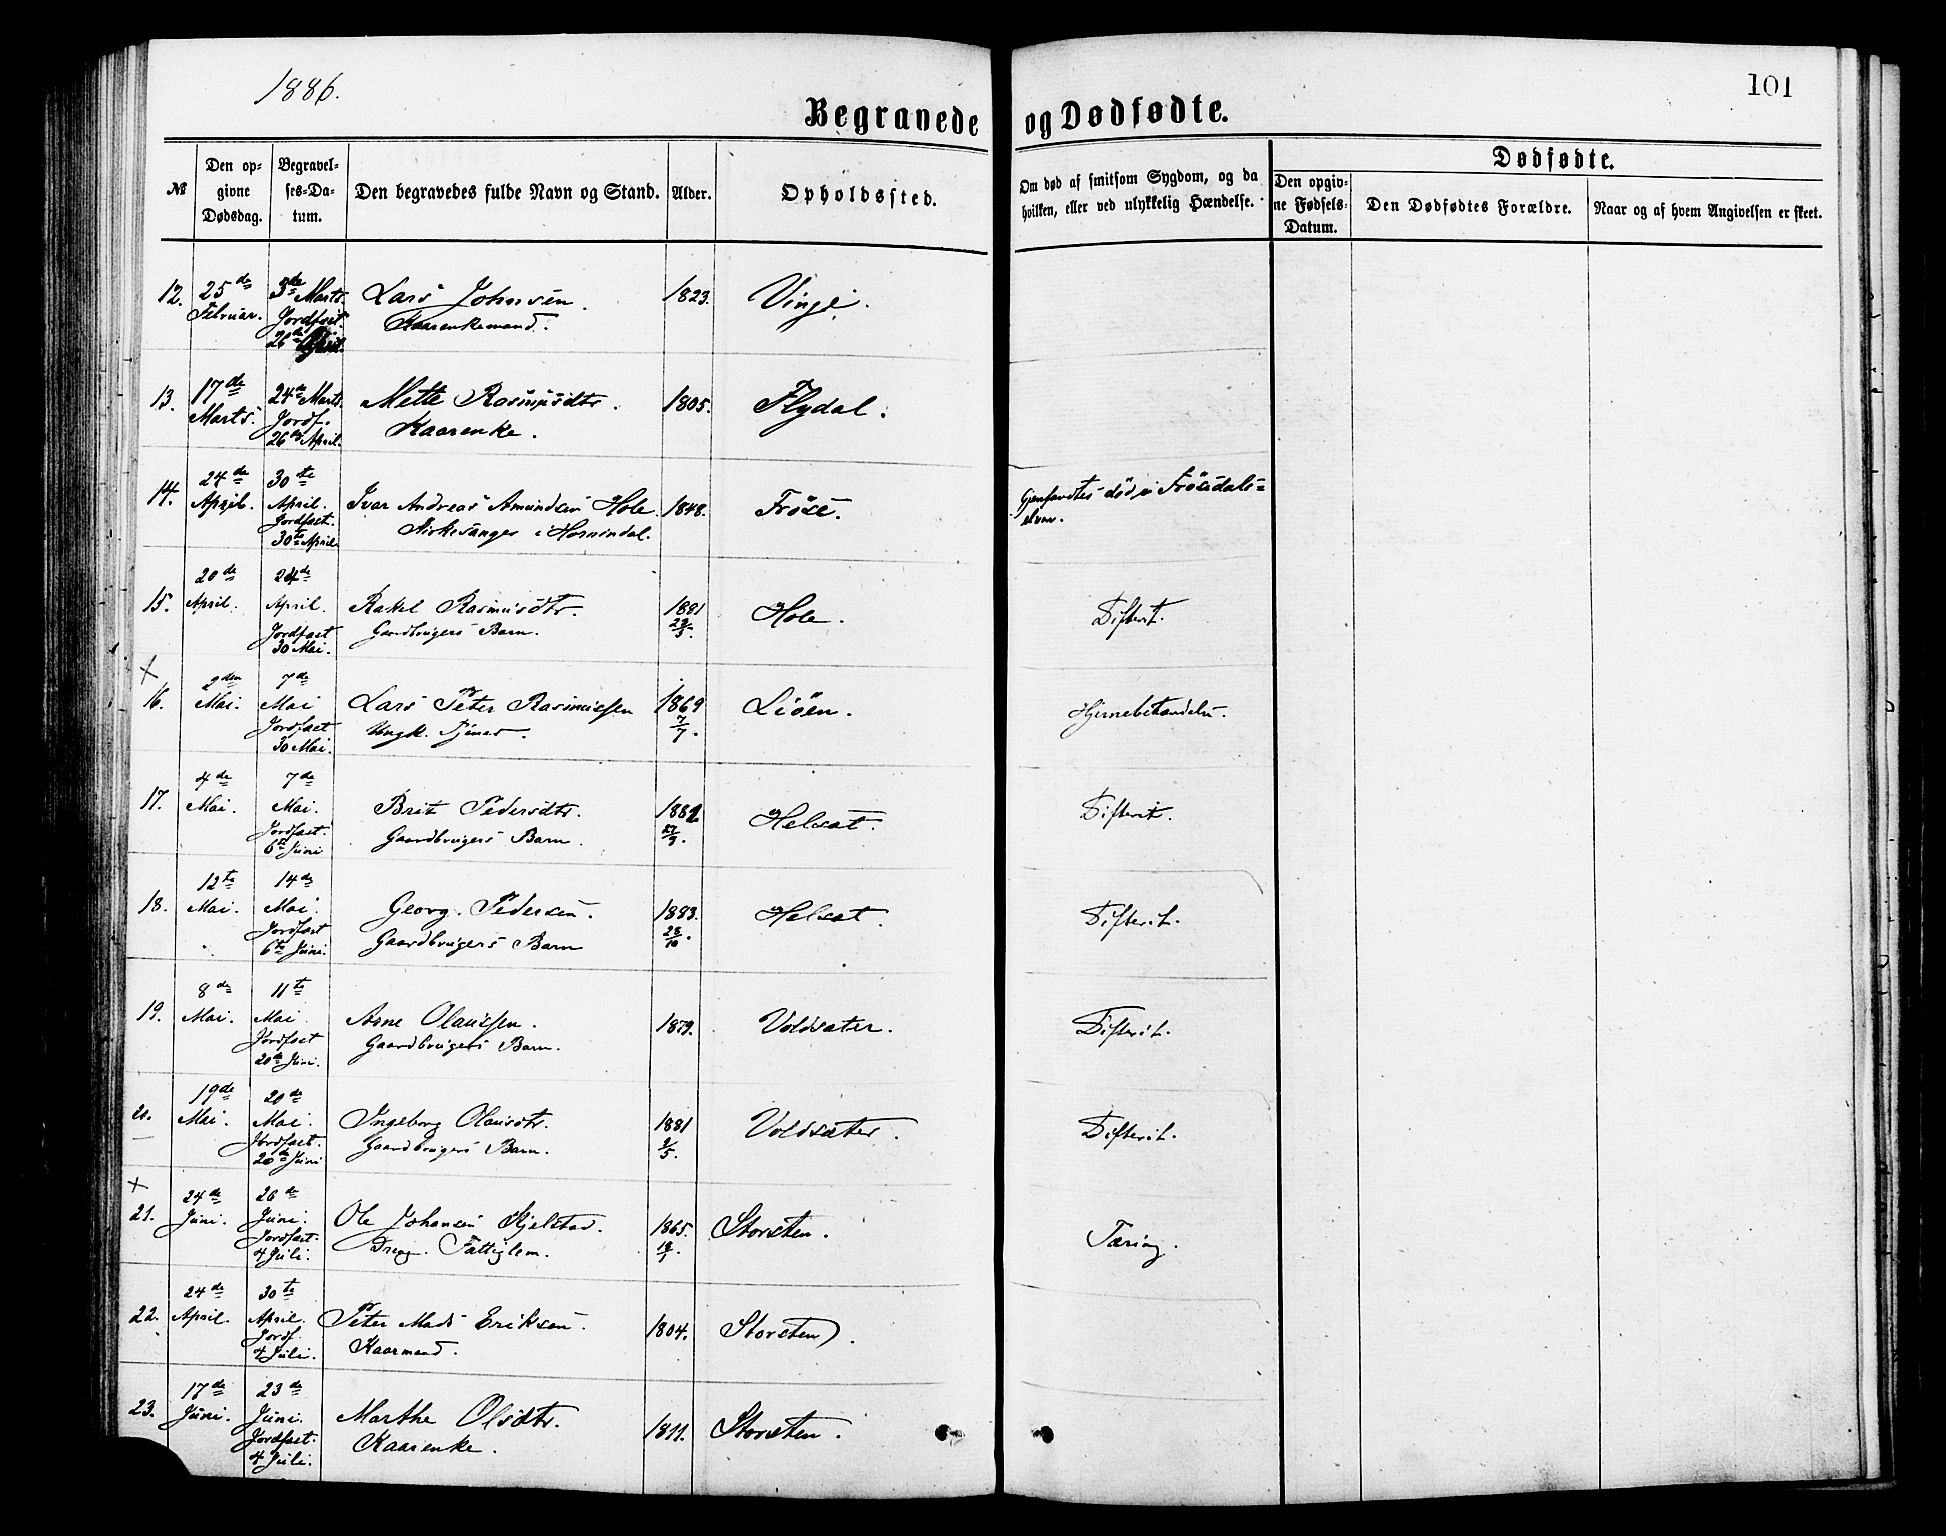 1886.
101
Begravede og Dødfødte.
Dødfødte.
№
Den op-
givne
Dødsdag.
Begravel-
ses-Da-
tum.
Den begravedes fulde Navn og Stand.
Alder.
Opholdssted.
Om død af smitsom Sygdom, og da
hvilken, eller ved ulykkelig Hændelse.
Den opgiv-
ne Fødsels-
Datum.
Den Dødfødtes Forældre.
Naar og af hvem Angivelsen er skeet.
12. 25de 3de Marts Lars Johnsen 1823. Vinje.
Februar. Jordfæst. Kaarenkemand.
26de April.
13. 17de 24de Marts Mette Rasmusdtr. 1805. Flydal.
Marts. Jordf. Kaarenke.
26de April.
14. 24de 30te
April. April. Ivar Andreas Amundsen Hole 1848. Frøse. Gjenfandtes død i Frøsedals-
Jordfæst. Kirkesanger i Hornindal. elven.
30te April.
15. 20de 24de
April. April. Rakel Rasmusdtr. 1881 Hole. Difterit.
Jordfæst Gaardbrugers Barn.
30 Mai.
+
16. 2den 7de
Mai. Mai Lars Peter Rasmussen 1869 Liøen. Hjernebetændelse.
Jordfæst Ungk. Tjener. 7/7.
30 Mai.
17. 4de 7de
Mai. Mai. Brit Pedersdtr. Helsæt. Difterit.
Jordfæst. Gaardbrugers Barn.
6te Juni
18. 12te 14de
Mai. Mai. Georg Pedersen. 1883. Helsæt. Difterit.
Jordfæst Gaardbrugers Barn 28/10.
6te Juni.
19. 8de 11te
Mai. Mai Arne Olaussen. 1879. Voldsæter. Difterit.
Jordfæst Gaardbrugers Barn.
20de Juni.
20. 19de 20de
Mai. Mai. Ingeborg Olausdtr. 1881 Voldsæter. Difterit.
Jordfæst. Gaardbrugers Barn.
20de Juni
+
21. 24de 26de
Juni. Juni. Ole Johansen Kjelstad. 1865. Storsten. Tæring.
Jordfæst. Dreng. Fattiglem.
4 Juli.
22. 24de 30te
April. April. Peter Mads Eriksen. 1804. Storsten.
Jordf. Kaarmand.
4 Juli.
23. 17de 23de
Juni. Juni. Marthe Olsdtr. 1811. Storsten.
Jordfæst. Kaarenke.
4 Juli.